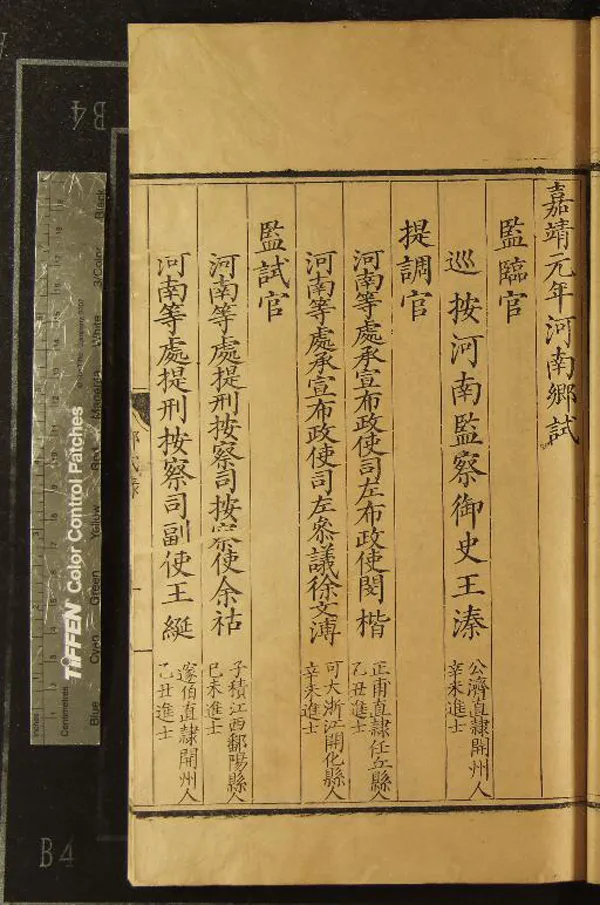 嘉靖元年河南鄉試
監臨官
巡按河南監察御史王溱
公濟直隸開州人
辛未進士
提調官
河南等處承宣布政使司左布政使閔楷
正甫直隸任丘縣人
乙丑進士
河南等處承宣布政使司左叅議徐文溥
可大浙江開化縣人
辛未進士
監試官
河南等處提刑按察司按察使余祜
子積江西鄱陽縣人
巳未進士
河南等處提刑按察司副使王綖
邃伯直隸開州人
乙丑進士
TIFFEN Color Control Patches
Blue Cyan Green Yellow Red Magenta White 3/Color Black
Inches
Centimetres
B4
B4